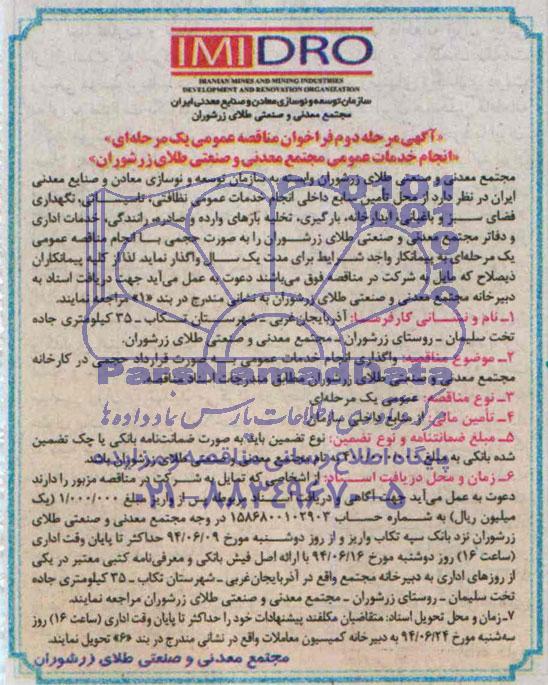 IMIDRO
IRANIAN MINES AND MINING INDUSTRIES
DEVELOPMENT AND RENOVATION ORGANIZATION
سازمان توسعه و نوسازی معادن و صنایع معدنی ایران
مجتمع معدنی و صنعتی طلای زرشوران
«آگهی مرحله دوم فراخوان مناقصه عمومی یک مرحله‌ای»
«انجام خدمات عمومی مجتمع معدنی و صنعتی طلای زرشوران»
مجتمع معدنی و صنعتی طلای زرشوران وابسته به سازمان توسعه و نوسازی معادن و صنایع معدنی
ایران در نظر دارد از محل تأمین منابع داخلی انجام خدمات عمومی نظافتی، تاسیساتی، نگهداری
فضای سبز و باغبانی، آبدارخانه، بارگیری، تخلیه بارهای وارده و صادره، رانندگی، خدمات اداری
و دفاتر مجتمع معدنی و صنعتی طلای زرشوران را به صورت حجمی با انجام مناقصه عمومی
یک مرحله‌ای به پیمانکار واجد شرایط برای مدت یک سال واگذار نماید. لذا از کلیه پیمانکاران
ذیصلاح که مایل به شرکت در مناقصه فوق می‌باشند دعوت به عمل می‌آید جهت دریافت اسناد به
دبیرخانه مجتمع معدنی و صنعتی طلای زرشوران به نشانی مندرج در بند «۱» مراجعه نمایند.
۱ـ نام و نشانی کارفرما: آذربایجان‌غربی ـ شهرستان تکاب ـ ۳۵ کیلومتری جاده
تخت سلیمان ـ روستای زرشوران ـ مجتمع معدنی و صنعتی طلای زرشوران.
۲ـ موضوع مناقصه: واگذاری انجام خدمات عمومی به صورت قرارداد حجمی در کارخانه
مجتمع معدنی و صنعتی طلای زرشوران مطابق مندرجات اسناد مناقصه.
۳ـ نوع مناقصه: عمومی یک مرحله‌ای
۴ـ تأمین مالی: از منابع داخلی سازمان
۵ـ مبلغ ضمانتنامه و نوع تضمین: نوع تضمین باید به صورت ضمانت‌نامه بانکی یا چک تضمین
شده بانکی به مبلغ به نام مجتمع معدنی و صنعتی طلای زرشوران باشد.
۶ـ زمان و محل دریافت اسناد: از اشخاصی که تمایل به شرکت در مناقصه مزبور را دارند
دعوت به عمل می‌آید جهت آگاهی و دریافت اسناد مربوطه پس از واریز مبلغ ۱/۰۰۰/۰۰۰ (یک
میلیون ریال) به شماره حساب ۱۵۸۶۸۰۰۱۰۲۹۰۳ در وجه مجتمع معدنی و صنعتی طلای
زرشوران نزد بانک سپه تکاب واریز و از روز دوشنبه مورخ ۹۴/۰۶/۰۹ حداکثر تا پایان وقت اداری
(ساعت ۱۶) روز دوشنبه مورخ ۹۴/۰۶/۱۶ با ارائه اصل فیش بانکی و معرفی‌نامه کتبی معتبر در یکی
از روزهای اداری به دبیرخانه مجتمع واقع در آذربایجان‌غربی ـ شهرستان تکاب ـ ۳۵ کیلومتری جاده
تخت سلیمان ـ روستای زرشوران ـ مجتمع معدنی و صنعتی طلای زرشوران مراجعه نمایند.
۷ـ زمان و محل تحویل اسناد: متقاضیان مکلفند پیشنهادات خود را حداکثر تا پایان وقت اداری (ساعت ۱۶) روز
سه‌شنبه مورخ ۹۴/۰۶/۲۴ به دبیرخانه کمیسیون معاملات واقع در نشانی مندرج در بند «۶» تحویل نمایند.
مجتمع معدنی و صنعتی طلای زرشوران
ParsNamadData
پایگاه اطلاع رسانی مناقصه و مزایده
۰۲۱-۸۸۳۴۹۶۷۰-۵